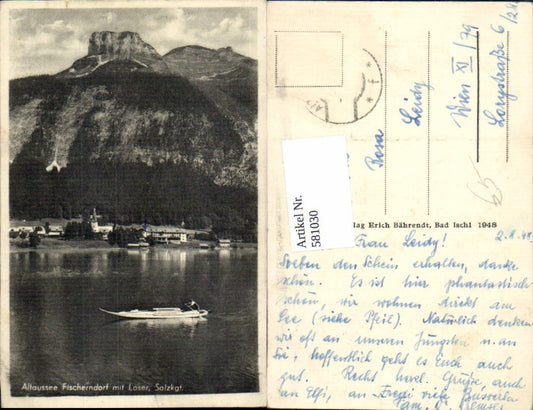 Altaussee Fischerndorf mit Loser, Salzkgt.
Rosa
Leidy
Wien XI / 79
Lorystraße 6
/28
65
Artikel Nr.
581030
lag Erich Bährendt, Bad Ischl 1948
Frau Leidy! 2.8.48
Soeben den Schein erhalten, danke
schön. Es ist hier phantastisch
schön, wir wohnen direkt am
See (siehe Pfeil). Natürlich denken
wir oft an unseren Jüngsten u. an
Sie, hoffentlich geht es Euch auch
gut. Recht herzl. Grüße, auch
an Elfi, an Fredi viele Busserln